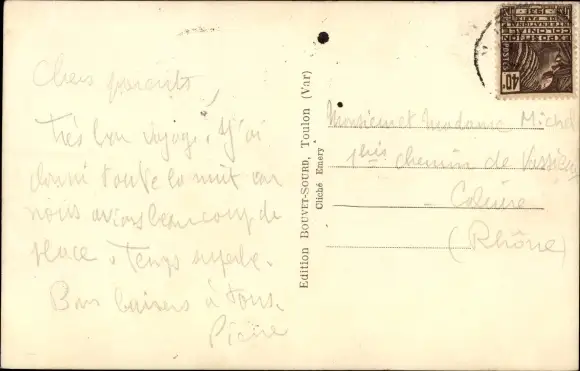 Chers parents,
Très bon voyage. J'ai
dormi toute la nuit car
nous avions beaucoup de
place. Temps superbe.
Bons baisers à tous.
Pierre
Edition BOUVET-SOURD, Toulon (Var)
Cliché Emery
Monsieur et Madame Michel
chemin de
(Rhône)
EXPOSITION
COLONIALE
INTERNATIONALE
PARIS 1931
POSTES
40c